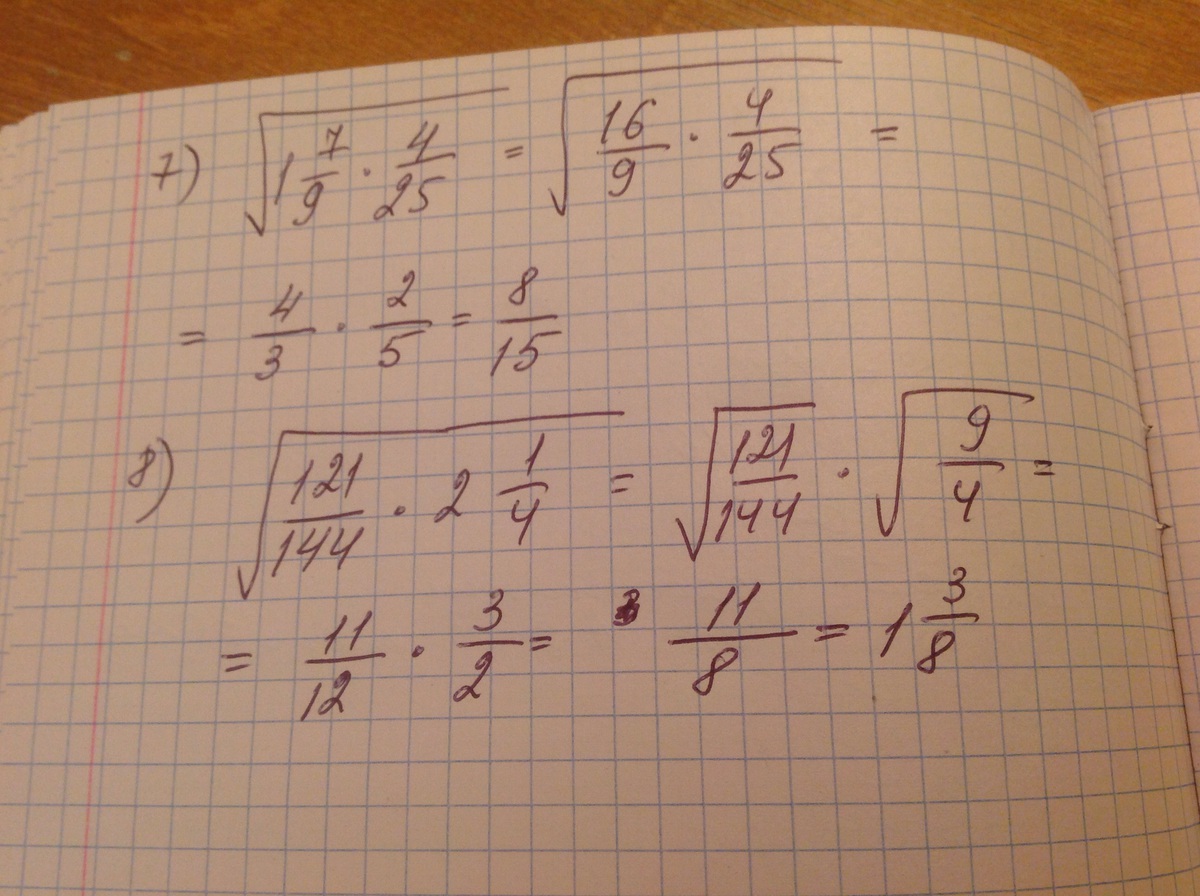 7) √(1 7/9 · 4/25) = √(16/9 · 4/25) =
= 4/3 · 2/5 = 8/15
8) √(121/144 · 2 1/4) = √(121/144) · √(9/4) =
= 11/12 · 3/2 = 11/8 = 1 3/8